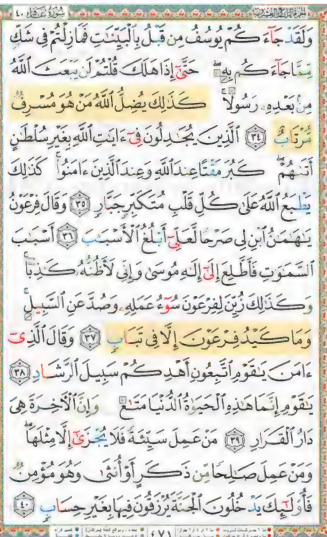 وَلَقَدْ جَآءَكُمْ يُوسُفُ مِن قَبْلُ بِٱلْبَيِّنَـٰتِ فَمَا زِلْتُمْ فِى شَكٍّ
مِّمَّا جَآءَكُم بِهِۦ ۖ حَتَّىٰٓ إِذَا هَلَكَ قُلْتُمْ لَن يَبْعَثَ ٱللَّهُ
مِنۢ بَعْدِهِۦ رَسُولًا ۚ كَذَٰلِكَ يُضِلُّ ٱللَّهُ مَنْ هُوَ مُسْرِفٌ
مُّرْتَابٌ ٣٤ ٱلَّذِينَ يُجَـٰدِلُونَ فِىٓ ءَايَـٰتِ ٱللَّهِ بِغَيْرِ سُلْطَـٰنٍ
أَتَىٰهُمْ ۖ كَبُرَ مَقْتًا عِندَ ٱللَّهِ وَعِندَ ٱلَّذِينَ ءَامَنُوا۟ ۚ كَذَٰلِكَ
يَطْبَعُ ٱللَّهُ عَلَىٰ كُلِّ قَلْبِ مُتَكَبِّرٍ جَبَّارٍ ٣٥ وَقَالَ فِرْعَوْنُ
يَـٰهَـٰمَـٰنُ ٱبْنِ لِى صَرْحًا لَّعَلِّىٓ أَبْلُغُ ٱلْأَسْبَـٰبَ ٣٦ أَسْبَـٰبَ
ٱلسَّمَـٰوَٰتِ فَأَطَّلِعَ إِلَىٰٓ إِلَـٰهِ مُوسَىٰ وَإِنِّى لَأَظُنُّهُۥ كَـٰذِبًا ۚ
وَكَذَٰلِكَ زُيِّنَ لِفِرْعَوْنَ سُوٓءُ عَمَلِهِۦ وَصُدَّ عَنِ ٱلسَّبِيلِ ۚ
وَمَا كَيْدُ فِرْعَوْنَ إِلَّا فِى تَبَابٍ ٣٧ وَقَالَ ٱلَّذِىٓ
ءَامَنَ يَـٰقَوْمِ ٱتَّبِعُونِ أَهْدِكُمْ سَبِيلَ ٱلرَّشَادِ ٣٨
يَـٰقَوْمِ إِنَّمَا هَـٰذِهِ ٱلْحَيَوٰةُ ٱلدُّنْيَا مَتَـٰعٌ وَإِنَّ ٱلْـَٔاخِرَةَ هِىَ
دَارُ ٱلْقَرَارِ ٣٩ مَنْ عَمِلَ سَيِّئَةً فَلَا يُجْزَىٰٓ إِلَّا مِثْلَهَا ۖ
وَمَنْ عَمِلَ صَـٰلِحًا مِّن ذَكَرٍ أَوْ أُنثَىٰ وَهُوَ مُؤْمِنٌ
فَأُو۟لَـٰٓئِكَ يَدْخُلُونَ ٱلْجَنَّةَ يُرْزَقُونَ فِيهَا بِغَيْرِ حِسَابٍ ٤٠
٤٧١